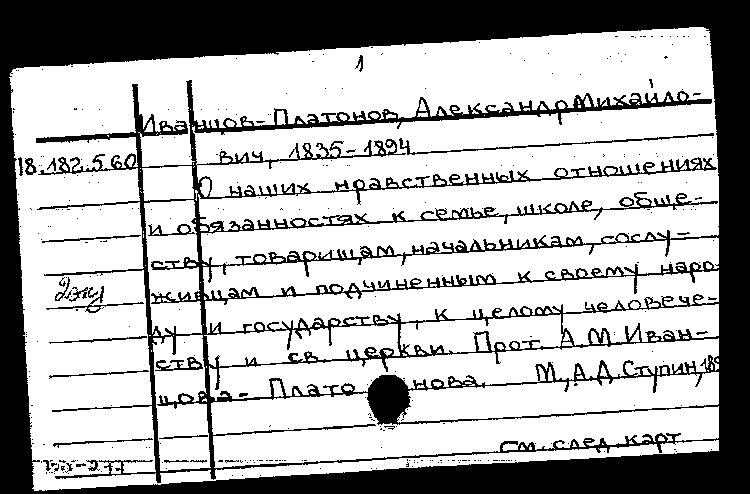 1
Иванцов-Платонов, Александр Михайло-
18.182.5.60
вич, 1835-1894
О наших нравственных отношениях
и обязанностях к семье, школе, обще-
ству, товарищам, начальникам, сослу-
2 экз
живцам и подчиненным к своему наро-
ду и государству, к целому человече-
ству и св. церкви. Прот. А.М. Иван-
цова-Платонова. М., А.Д. Ступин, 189
см. след. карт